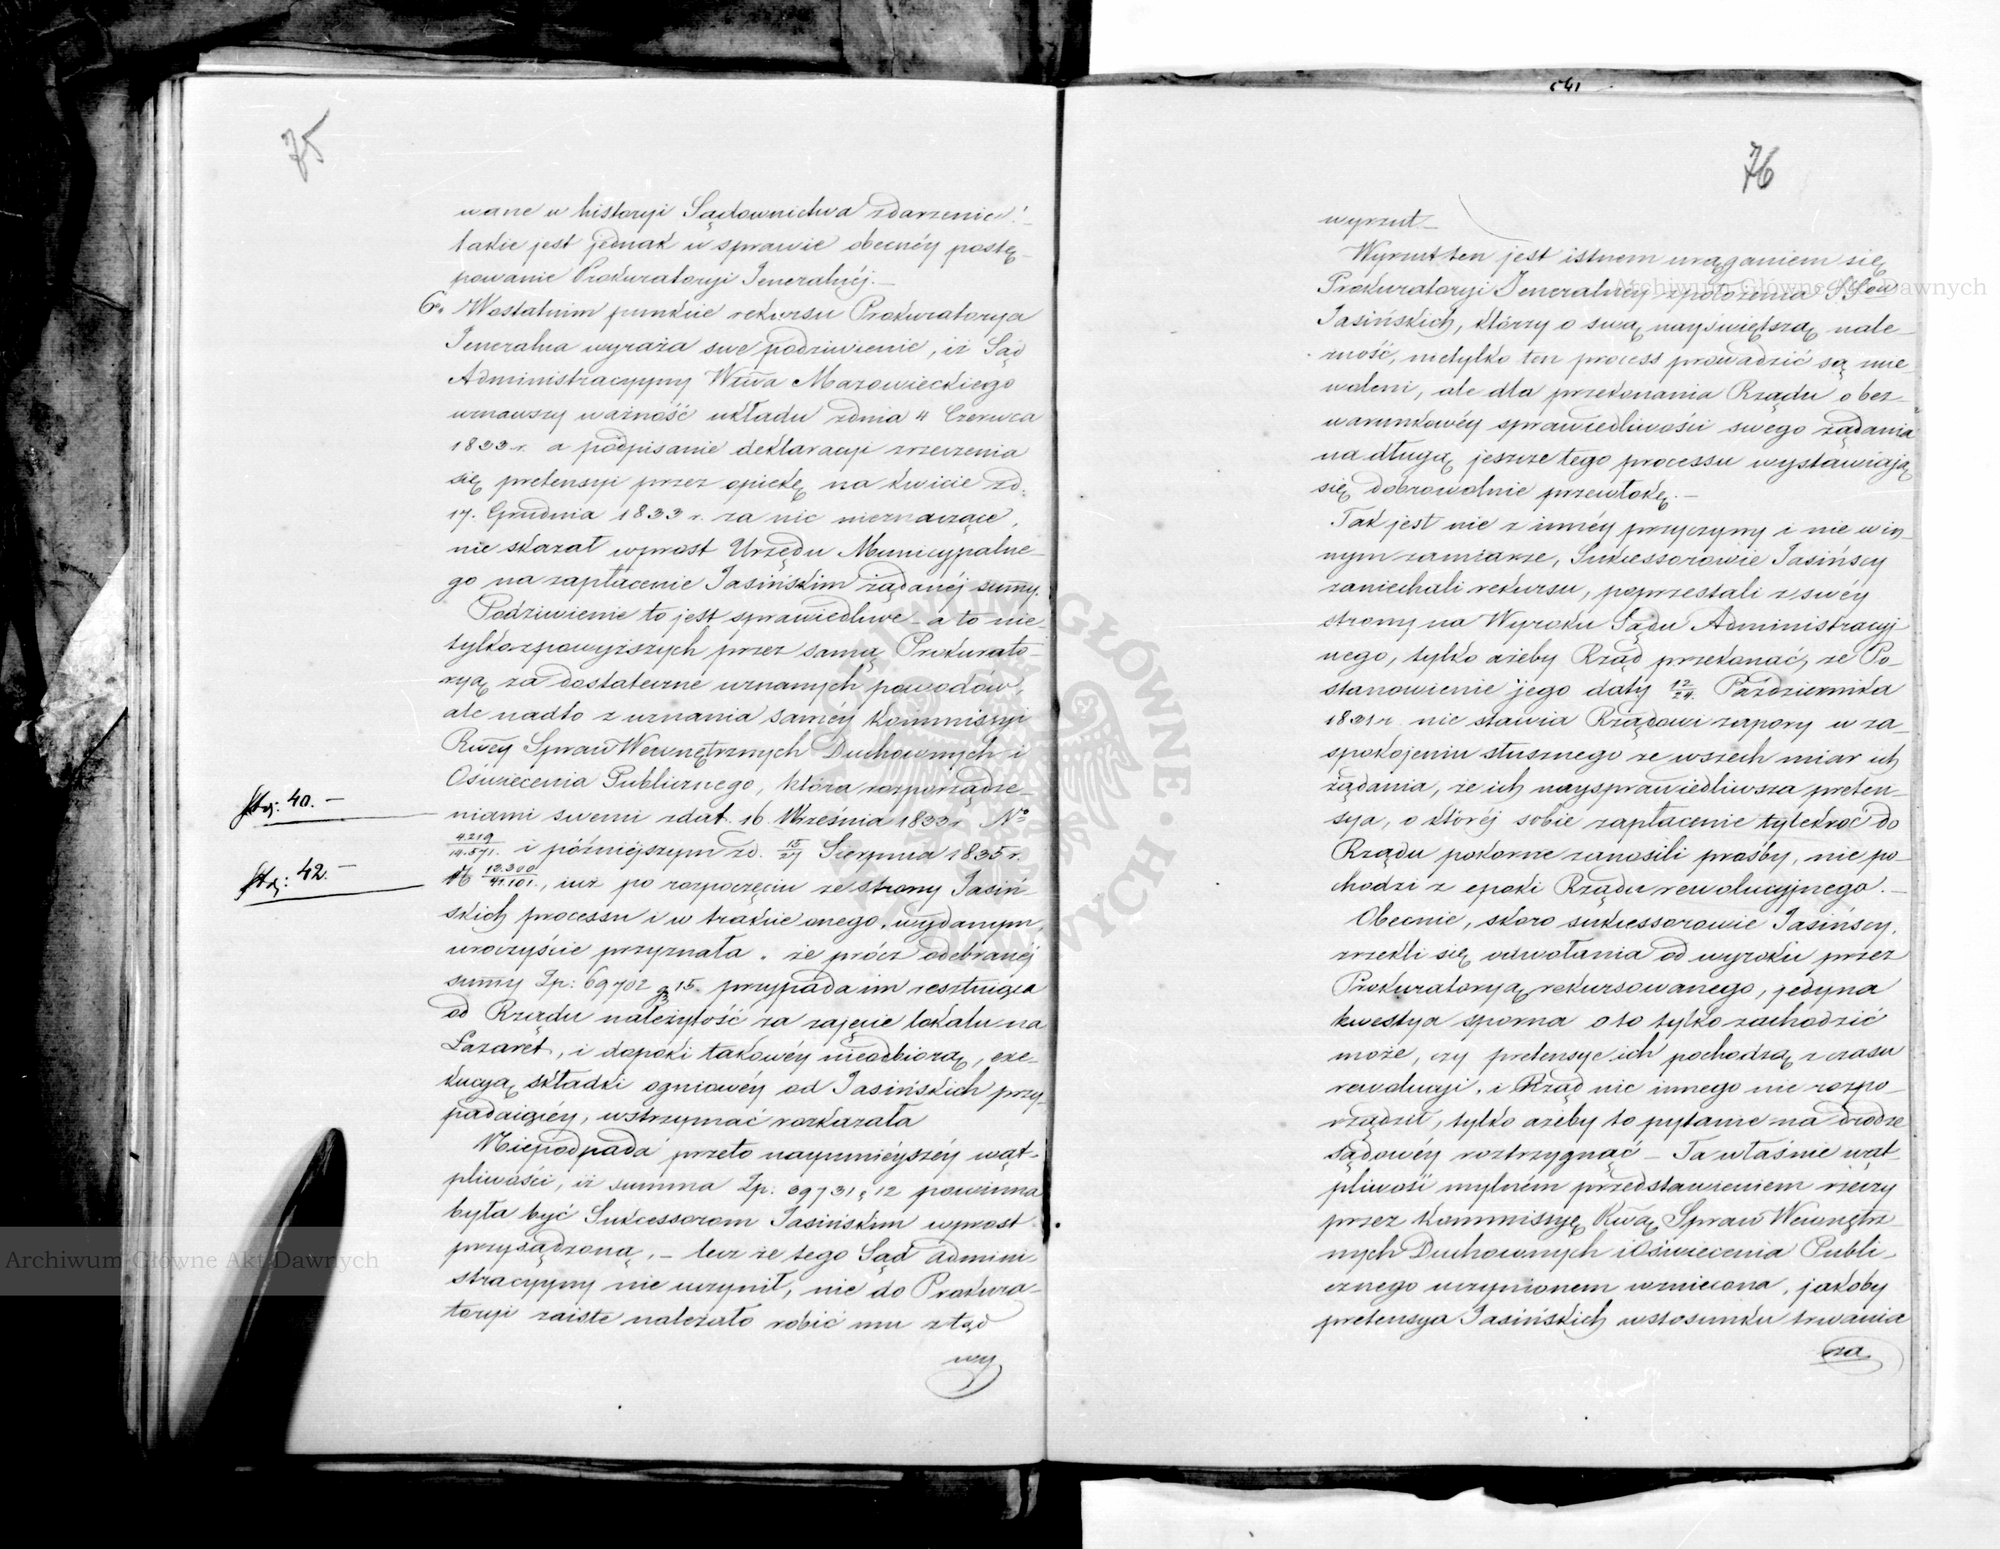 75
wane w historyi Sądownictwa zdarzenie!
takie jest jednak w sprawie obecnéy postę-
powanie Prokuratoryi Jeneralnéj.—
6o. W ostatnim punkcie rekursu Prokuratorya
Jeneralna wyraża swe podziwienie, iż Sąd
Administracyyny Wztwa Mazowieckiego
uznawszy ważność układu zdnia 4 Czerwca
1833 r. a podpisanie deklaracyi zrzeczenia
się pretensyi przez opiekę na kwicie zd:
17. Grudnia 1833 r. za nic nieznaczące,
nie skazał wprost Urzędu Municypalne-
go na zapłacenie Jasińskim żądanéj summy.
Podziwienie to jest sprawiedliwe – a to nie-
tylko z powyższych przez samą Prokurato-
ryą za dostateczne uznanych powodów,
ale nadto z uznania saméy Kommissyi
Rwéy Spraw Wewnętrznych Duchownych i
Oświecenia Publicznego, która rozporządze-
Str: 40.—
niami swemi zdat. 16 Września 1833 r. No
4219/19.571. i późniejszym zd. 15/27 Sierpnia 1835 r.
Str: 42.—
No 13.300/41.101., już po rozpoczęciu ze strony Jasiń-
skich processu i w trakcie onego, wydanym,
uroczyście przyznała, że prócz odebranéj
summy Zp: 69702 g 15. przypada im resztująca
od Rządu należytość za zajęcie lokalu na
Lazaret, i dopoki takowéy nieodbiorą, exe-
kucyą składki ogniowéy od Jasińskich przy-
padaiącéy, wstrzymać rozkazała
Niepodpada przeto naymniéyszéy wąt-
pliwości, iż summa Zp. 39731 g 12 powinna
była być Sukcessorom Jasińskim wprost
przysądzoną, – lecz że tego Sąd Admini-
stracyyny nie uczynił, nie do Prokura-
toryi zaiste należało robić mu ztąd
wy
76
wyrzut.—
Wyrzut ten jest istnem urąganiem się
Prokuratoryi Jeneralnéy z położenia SSów
Jasińskich, którzy o swą nayświętszą nale-
żność, nietylko ten process prowadzić są znie-
woleni, ale dla przekonania Rządu o bez-
warunkowéy sprawiedliwości swego żądania
na długą jeszcze tego processu wystawiają
się dobrowolnie przewłokę.—
Tak jest nie z innéy przyczyny i nie w in-
nym zamiarze, Sukcessorowie Jasińscy
zaniechali rekursu, poprzestali z swéy
strony na Wyroku Sądu Administracyj
nego, tylko ażeby Rząd przekonać, że Po-
stanowienie jego daty 12/24. Października
1831 r. nie stawia Rządowi zapory w za-
spokojeniu słusznego ze wszech miar ich
żądania, że ich nayysprawiedliwsza preten-
sya, o któréj sobie zapłacenie tylekroć do
Rządu pokorne zanosili prośby, nie po-
chodzi z epoki Rządu rewolucyjnego.—
Obecnie, skoro sukcessorowie Jasińscy,
zrzekli się odwołania od wyroku przez
Prokuratoryą rekursowanego, jedyna
kwestya sporna o to tylko zachodzić
może, czy pretensye ich pochodzą z czasu
rewolucyi, i Rząd nic innego nie rozpo-
rządził, tylko ażeby to pytanie na drodze
sądowéy roztrzygnąć – Ta właśnie wąt-
pliwość mylném przedstawieniem rzeczy
przez Kommissyę Rwą Spraw Wewnętrz-
nych Duchownych i Oświecenia Publi-
cznego uczynionem wzniecona, jakoby
pretensya Jasińskich w stosunku trwania
za